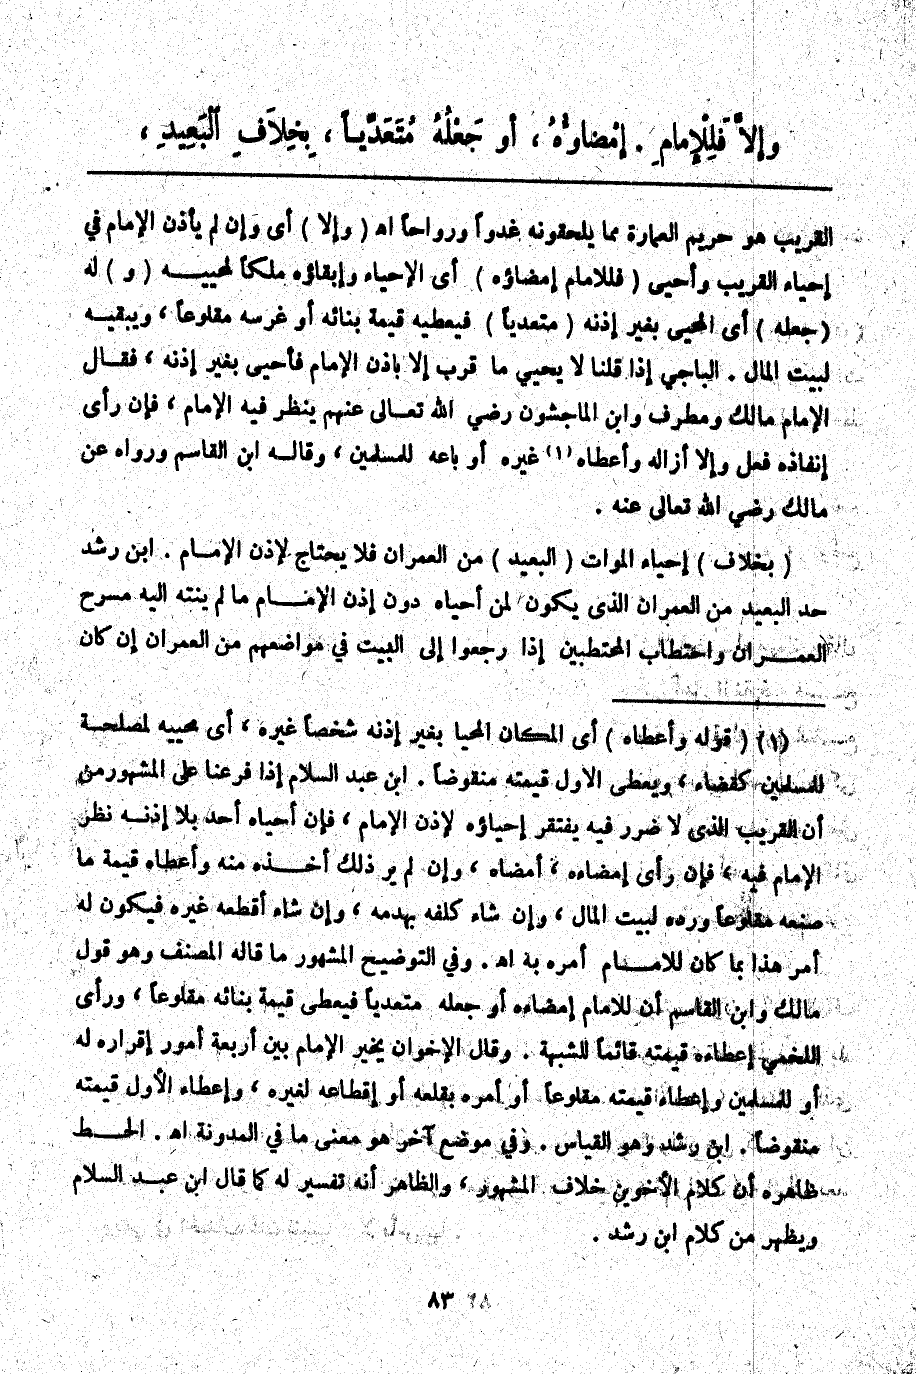 وإلاَّ فَلِلْإِمامِ . إِمْضاؤُهُ ، أو جَعْلُهُ مُتَعَدِّيـاً ، بِخِلَافِ الْبَعِيدِ ،
القريب هو حريم العمارة مما يلحقونه غدواً ورواحاً اه ( وإلا ) أى وإن لم يأذن الإمام في
إحياء القريب وأحيى ( فللامام إمضاؤه ) أى الإحياء وإبقاؤه ملكاً لمحييـــه ( و ) له
( جعله ) أى المحيى بغير إذنه ( متعدياً ) فيعطيه قيمة بنائه أو غرسه مقلوعاً ، ويبقيـه
لبيت المال . الباجي إذا قلنا لا يحيي ما قرب إلا باذن الإمام فأحيى بغير إذنه ، فقـال
الإمام مالك ومطرف وابن الماجشون رضي الله تعـالى عنهم ينظر فيه الإمام ، فإن رأى
إنفاذه فعل وإلا أزاله وأعطاه (١) غيره أو باعه للمسلمين ، وقالـه ابن القاسم ورواه عن
مالك رضي الله تعالى عنه .
( بخلاف ) إحياء الموات ( البعيد ) من العمران فلا يحتاج لإذن الإمـام . ابن رشد
حد البعيد من العمران الذى يكون لمن أحياه دون إذن الإمـــام ما لم ينته اليه مسرح
العمـــران واحتطاب المحتطبين إذا رجعوا إلى البيت في مواضعهم من العمران إن كان
(١) ( قوله وأعطاه ) أى المكان المحيا بغير إذنه شخصاً غيره ، أى محييه لمصلحـة
المسلمين كفضاء ، ويعطى الاول قيمته منقوضاً . ابن عبد السلام إذا فرعنا على المشهور من
أن القريب الذى لا ضرر فيه يفتقر إحياؤه لإذن الإمام ، فإن أحياه أحد بلا إذنـه نظر
الإمام فيه ، فإن رأى إمضاءه ، أمضاه ، وإن لم ير ذلك أخـــذه منه وأعطاه قيمة ما
صنعه مقلوعاً ورده لبيت المال ، وإن شاء كلفه بهدمه ، وإن شاء أقطعه غيره فيكون له
أمر هذا بما كان للامـــام أمره به اه . وفي التوضيح المشهور ما قاله المصنف وهو قول
مالك وابن القاسم أن للامام إمضاءه أو جعله متعدياً فيعطى قيمة بنائه مقلوعاً ، ورأى
اللخمي إعطاءه قيمته قائماً للشبهة . وقال الإخوان يخير الإمام بين أربعة أمور إقراره له
أو للمسلمين وإعطاء قيمته مقلوعاً أو أمره بقلعه أو إقطاعه لغيره ، وإعطاء الأول قيمته
منقوضاً . ابن رشد وهو القياس . وفي موضع آخر هو معنى ما في المدونة اه . الحـــط
ظاهره أن كلام الأخوين خلاف المشهور ، والظاهر أنه تفسير له كما قال ابن عبـد السلام
ويظهر من كلام ابن رشد .
٨٣